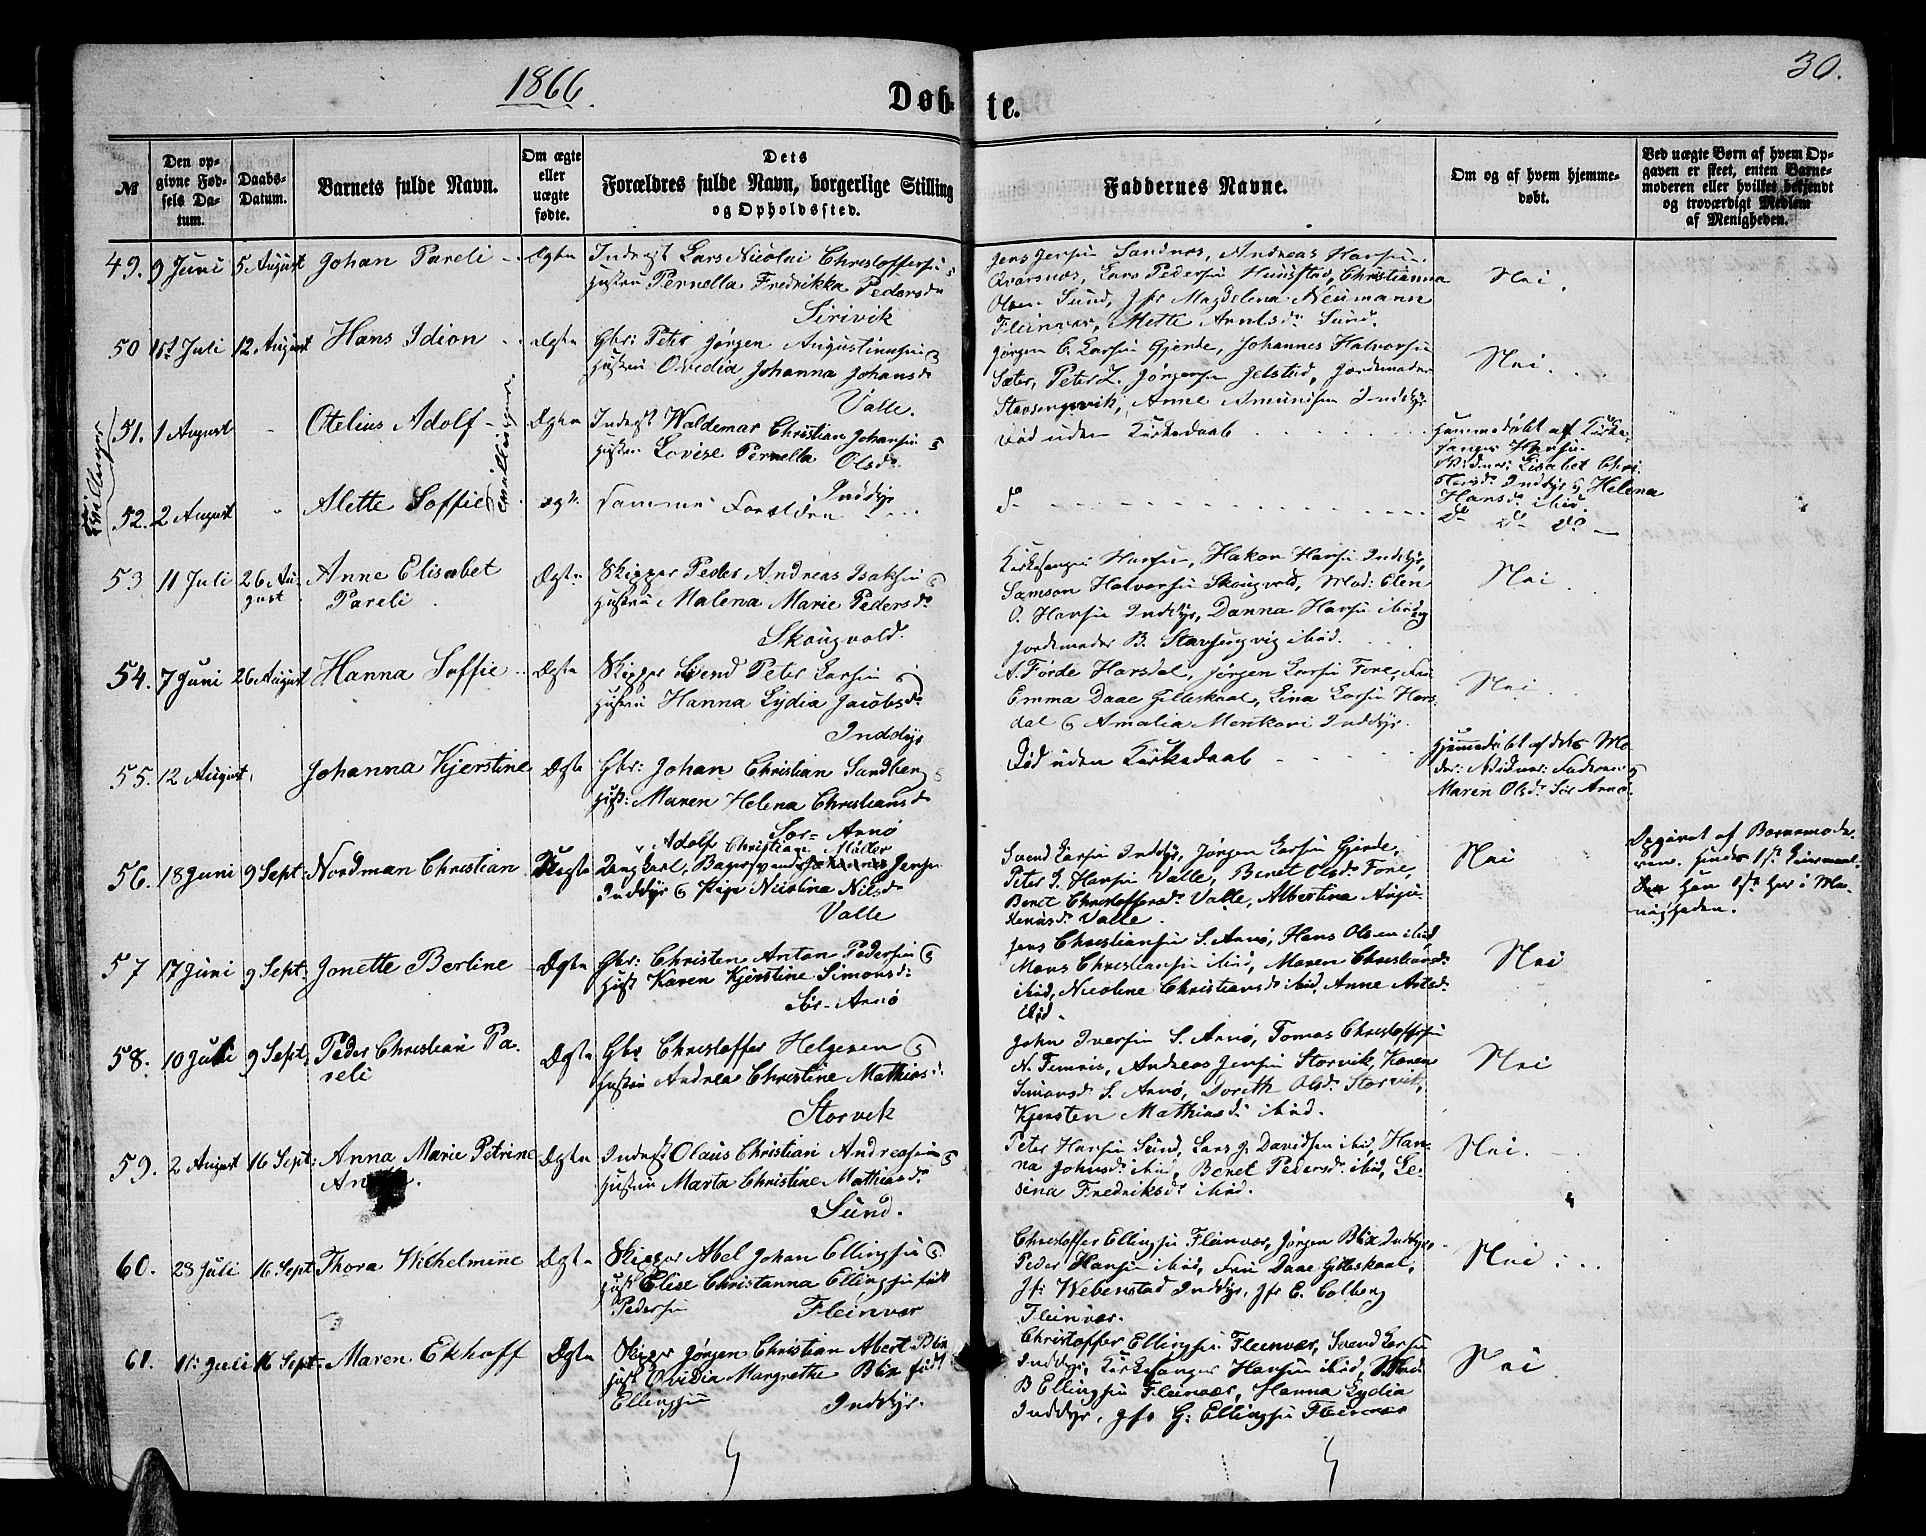 1866.
Døbte.
30.
№
Den opgivne Fødsels Datum.
Daabs-Datum.
Barnets fulde Navn.
Om ægte eller uægte fødte.
Dets Forældres fulde Navn, borgerlige Stilling og Opholdssted.
Faddernes Navne.
Om og af hvem hjemmedøbt.
Ved uægte Børn af hvem Opgaven er skeet, enten Barnemoderen eller hvilket bekjendt og troværdigt Medlem af Menigheden.
49. 9 Juni 5 August Johan Pareli Ægte Inderst Lars Nicolai Christoffersen
Hustru Pernella Fredrikka Pedersdr
Sirivik
Jens Jensen Sandnes, Andreas Hansen
Lars Pedersen Hustad, Christianna
Olsen Sund, Jfr Magdelena Neumann
Fleinvær, Mette Arntsdr Sund.
Nei.
50 15d Juli 12 August Hans Idion Ægte Gbr: Peter Jørgen Augustinusen
Hustru Ovedia Johanna Johansdr
Valle.
Jørgen C. Larsen Gjerde, Johannes Halvorsen
Sæter, Peter Z. Jørgensen Jelstad, Jordemoder
Stavsengvik, Anne Amunsen Inddyr
Nei.
Tvillinger
51. 1 August Otelius Adolf Ægte Inderst Waldemar Christian Johansen
Hustru Lovise Pernella Olsdr
Inddyr
Død uden Kirkedaab
Hjemmedøbt af Kirke-
sanger Hansen.
Vidner: Lisabet Chri-
Inddyr & Helena
Hansdr ibid.
52. 2 August Alette Soffie Ægte Samme Forældre
Do
Do Do Do
tvillinger.
53 11 Juli 26 August Anne Elisabet
Pareli
Ægte Skipper Peder Andreas Isaksen &
Hustru Malena Marie Pedersdr
Skougvold.
Kirkesanger Hansen, Hakon Hansen Inddyr,
Samson Halvorsen Skougvold, Mad: Elen
O. Hansen Inddyr, Danna Hansen ibid og
Jordemoder B. Stavsengvig ibid.
Nei
54. 7 Juni 26 August Hanna Soffie Ægte Skipper Svend Peter Larsen &
Hustru Hanna Lydia Jacobsdr
Inddyr
A. Førde Harsdal, Jørgen Larsen Fore, Fru
Emma Daae Gilleskaal, Lina Larsen Hars-
dal & Amalia Mentzoni Inddyr.
Nei
55. 12 August, Johanna Kjerstine Ægte Gbr: Johan Christian Sandberg &
Hust: Maren Helena Christiansdr
Sør-Arnø
Død uden Kirkedaab
Hjemmedøbt af dets Mo-
der: Vidner: Faderen &
Maren Olsdr Sør Arnø
56. 18 Juni 9 Sept: Nordman Christian Uægte
Adolf Christian Møller
Ungkarl, Bagersvend Jensen
Inddyr & Pige Nicolina Nilsdr
Valle
Svend Larsen Inddyr, Jørgen Larsen Gjerde,
Peter J. Hansen Valle, Benet Olsdr Fore,
Beret Christoffersdr Valle, Albertina Augu-
stinusdr Valle.
Nei
Opgivet af Barnemode-
ren. Hendes 1st Leiermaal
Han 1st her i Me-
nigheden.
57 17 Juni 9 Sept. Jonette Berline Ægte Gbr: Christen Anton Pedersen &
Hust Karen Kjerstine Simonsd:
Sør-Arnø
Jens Christiansen S. Arnø, Hans Olsen ibid
Mons Christiansen ibid, Maren Christiansdr
ibid, Nicoline Christiansdr ibid, Anne Antsdr
ibid.
Nei
58. 10 Juli 9 Sept. Peder Christian Pa-
reli
Ægte Gbr Christoffer Helgesen &
Hustru Andrea Christine Mathiasd:
Storvik
John Iversen S. Arnø, Tomas Christoffersen
N. Femris, Andreas Jensen Storvik, Karen
Simonsdr S. Arnø, Doreth Olsdr Storvik,
Kjersten Mathiasdr ibid.
Nei
59. 2 August 16 Sept: Anna Marie Petrine
Ægte Inderst Olaus Christian Andreasen &
Hustru Marta Christine Mathiasdr
Sund.
Peter Hansen Sund, Lars J. Davidsen ibid, Han-
na Johnsdr ibid, Beret Pedersdr ibid, Ge-
sina Fredriksdr ibid.
Nei.
60. 28 Juli 16 Sept Thora Wilhelmine Ægte Skipper Abel Johan Ellingsen &
Hust Elise Christianna Ellingsen født
Pedersen Fleinvær
Christoffer Ellingsen Fleinvær, Jørgen Blix Inddyr,
Peder Hansen ibid, Fru Daae Gilleskaal,
Jf: Webenstad Inddyr, Jfr E. Colberg
Fleinvær.
Nei
61. 11: Juli 16 Sept Maren Ekhoff Ægte Skipper Jørgen Christian Abert Blix
Hust Ovidia Margrethe Blix født
Ellingsen Inddyr.
Christoffer Ellingsen Fleinvær, Svend Larsen
Inddyr, Kirkesanger Hansen ibid, Mad.
B Ellingsen Fleinvær, Hanna Lydia
Inddyr, Jfr G. Ellingsen Fleinvær
Nei